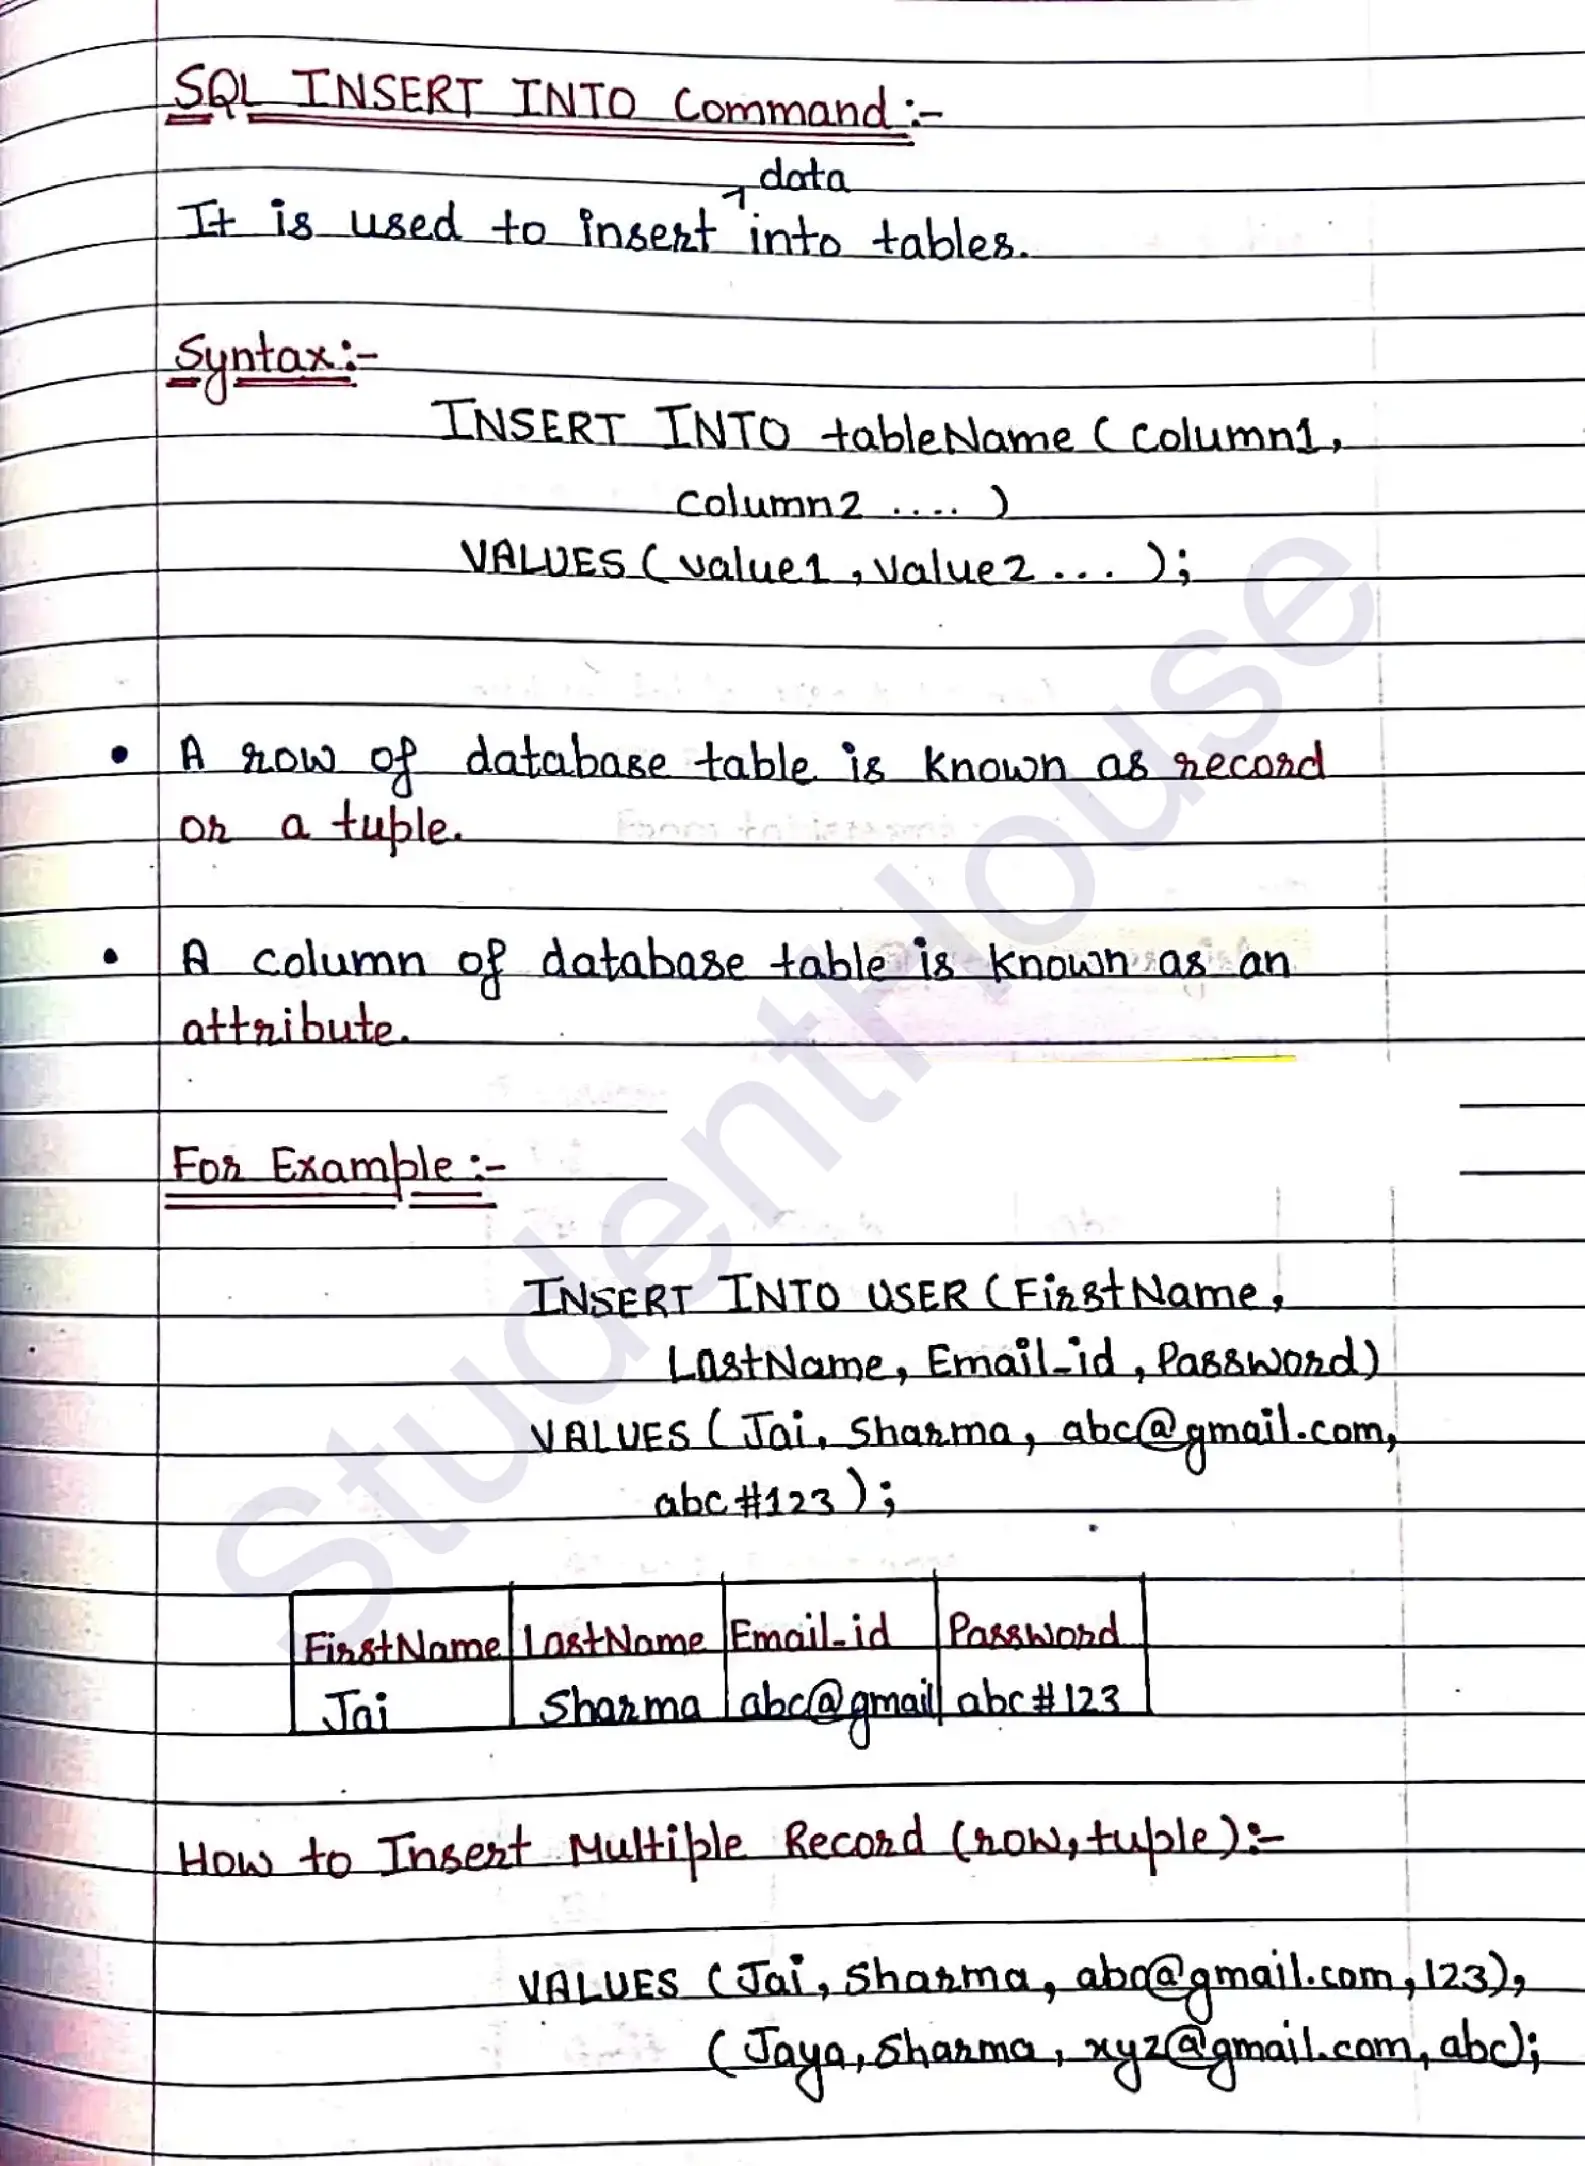 SQL INSERT INTO Command :-
data
It is used to insert into tables.
Syntax:-
INSERT INTO tableName (Column1,
Column2 .... )
VALUES (value1, value2 ... );
• A row of database table is known as record
or a tuple.
• A column of database table is known as an
attribute.
For Example :-
INSERT INTO USER (FirstName,
LastName, Email-id, Password)
VALUES (Jai, Sharma, abc@gmail.com,
abc#123);
FirstName LastName Email-id Password
Jai Sharma abc@gmail abc#123
How to Insert Multiple Record (row, tuple):-
VALUES (Jai, Sharma, abc@gmail.com, 123),
(Jaya, Sharma, xyz@gmail.com, abc);
StudentHouse